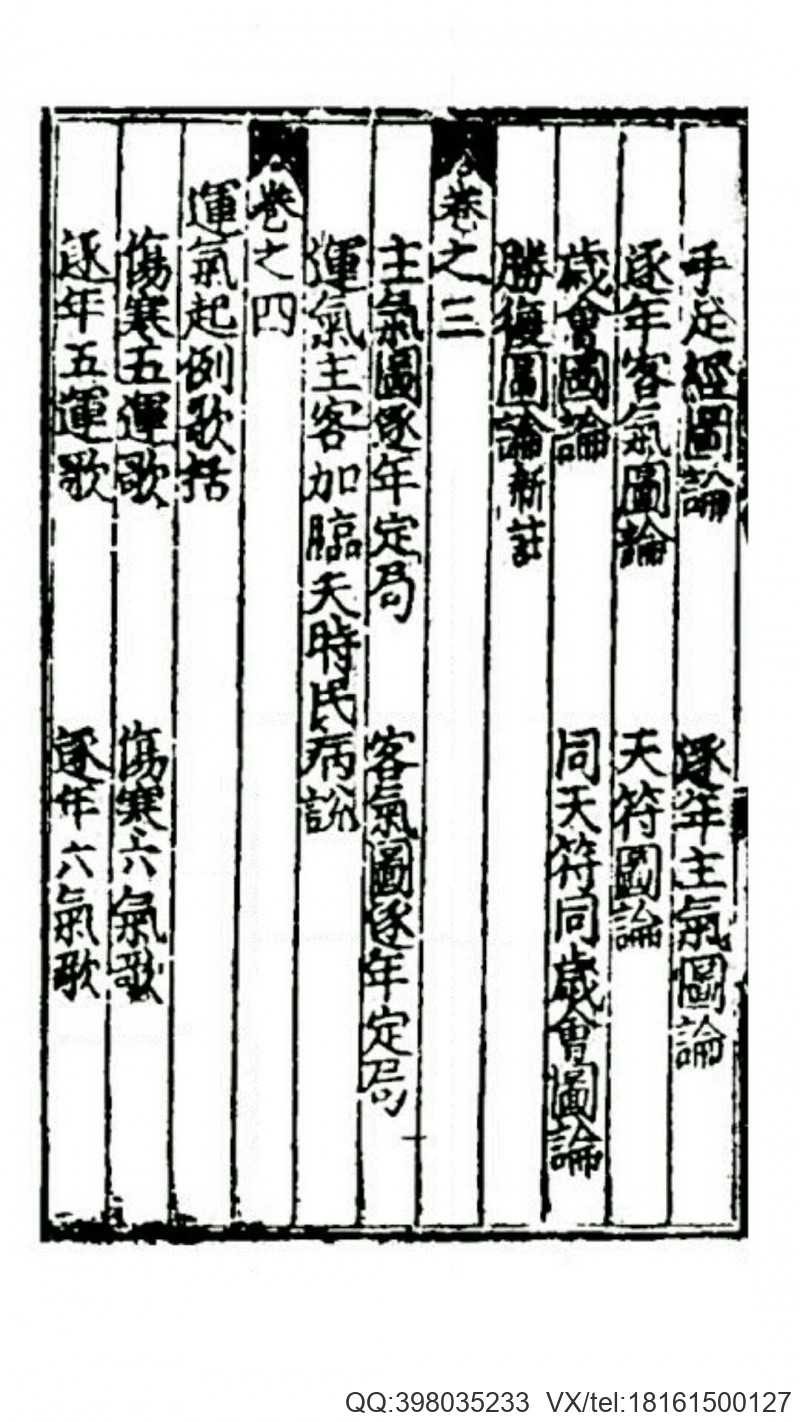 手足經圖論 逐年主氣圖論
逐年客氣圖論 天符圖論
歲會圖論 同天符同歲會圖論
勝復圖論新註
卷之三
主氣圖逐年定局 客氣圖逐年定局
運氣主客加臨天時民病訟
卷之四
運氣起例歌括
傷寒五運歌 傷寒六氣歌
逐年五運歌 逐年六氣歌
QQ:398035233 VX/tel:18161500127